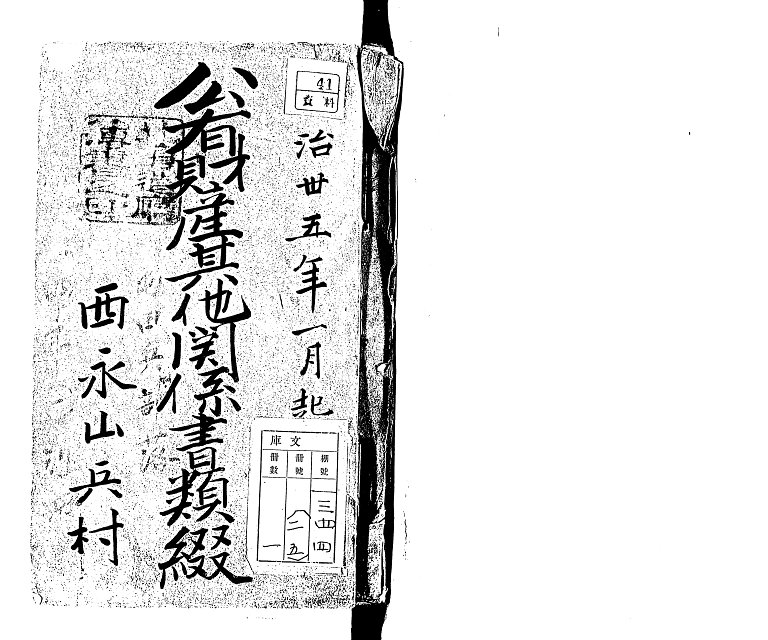 41
資料
治丗五年一月起
公有財産其他関係書類綴
西永山兵村
文庫
棚號
一三四四
冊號
(二五)
冊數
一